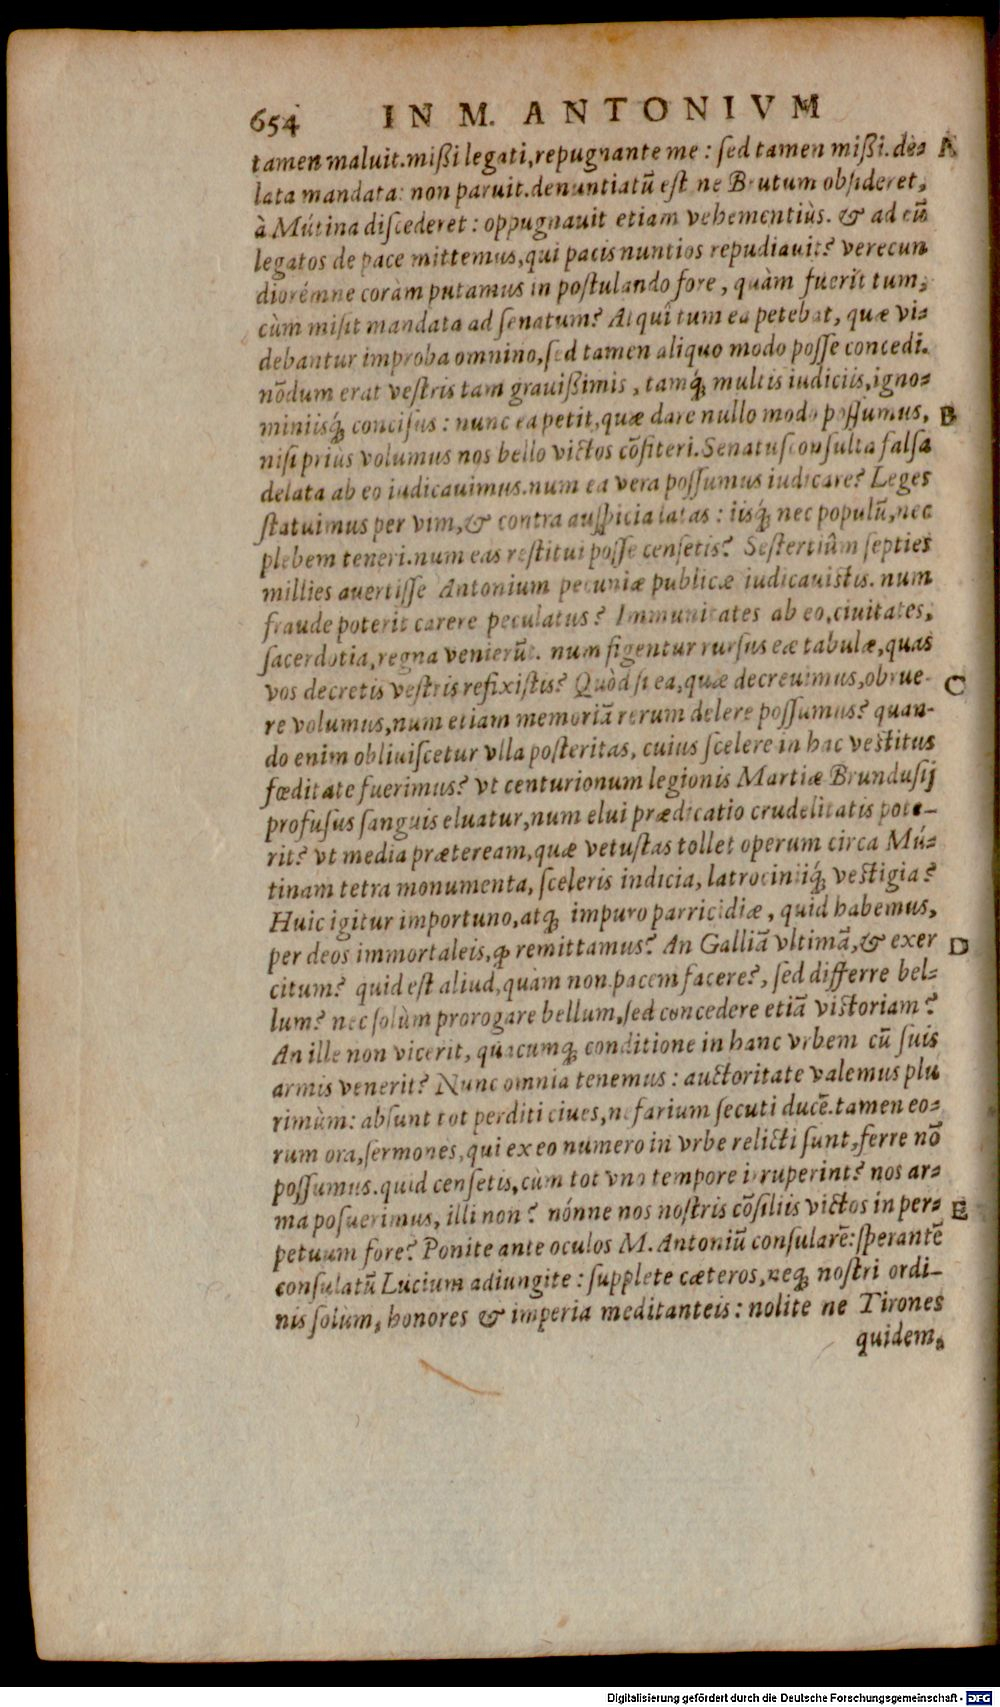 654 IN M. ANTONIVM
tamen maluit. mißi legati, repugnante me: sed tamen mißi. de- A
lata mandata: non paruit. denuntiatū est ne Brutum obsideret,
à Mútina discederet: oppugnauit etiam vehementiùs. & ad eū
legatos de pace mittemus, qui pacis nuntios repudiauit? verecun
diorémne coràm putamus in postulando fore, quàm fuerit tum,
cùm misit mandata ad senatum? Atqui tum ea petebat, quæ vi-
debantur improba omnino, sed tamen aliquo modo posse concedi.
nōdum erat vestris tam grauißimis, tamq́; multis iudiciis, igno-
miniisq́; concisus: nunc ea petit, quæ dare nullo modo possumus, B
nisi priùs volumus nos bello victos cōfiteri. Senatusconsulta falsa
delata ab eo iudicauimus. num ea vera possumus iudicare? Leges
statuimus per vim, & contra auspicia latas: iisq́; nec populū, nec
plebem teneri. num eas restitui posse censetis? Sestertiûm septies
millies auertisse Antonium pecuniæ publicæ iudicauistis. num
fraude poterit carere peculatus? Immunitates ab eo, ciuitates,
sacerdotia, regna venierūt. num figentur rursus eæ tabulæ, quas
vos decretis vestris refixistis? Quòd si ea, quæ decreuimus, obrue- C
re volumus, num etiam memoriā rerum delere possumus? quan-
do enim obliuiscetur vlla posteritas, cuius scelere in hac vestitus
fœditate fuerimus? vt centurionum legionis Martiæ Brundusij
profusus sanguis eluatur, num elui prædicatio crudelitatis pote-
rit? vt media præteream, quæ vetustas tollet operum circa Mú-
tinam tetra monumenta, sceleris indicia, latrociniiq́; vestigia?
Huic igitur importuno, atq; impuro parricidiæ, quid habemus,
per deos immortaleis, ꝙ remittamus? An Galliā vltimā, & exer D
citum? quid est aliud, quàm non pacem facere?, sed differre bel-
lum? nec solùm prorogare bellum, sed concedere etiā victoriam?
An ille non vicerit, quacumq; conditione in hanc vrbem cū suis
armis venerit? Nunc omnia tenemus: auctoritate valemus plu
rimùm: absunt tot perditi ciues, nefarium secuti ducē. tamen eo-
rum ora, sermones, qui ex eo numero in vrbe relicti sunt, ferre nō
possumus. quid censetis, cùm tot vno tempore irruperint? nos ar-
ma posuerimus, illi non? nónne nos nostris cōsiliis victos in per- E
petuum fore? Ponite ante oculos M. Antoniū consularē: sperantē
consulatū Lucium adiungite: supplete cæteros, neq; nostri ordi-
nis solùm, honores & imperia meditanteis: nolite ne Tirones
quidem,
Digitalisierung gefördert durch die Deutsche Forschungsgemeinschaft - DFG